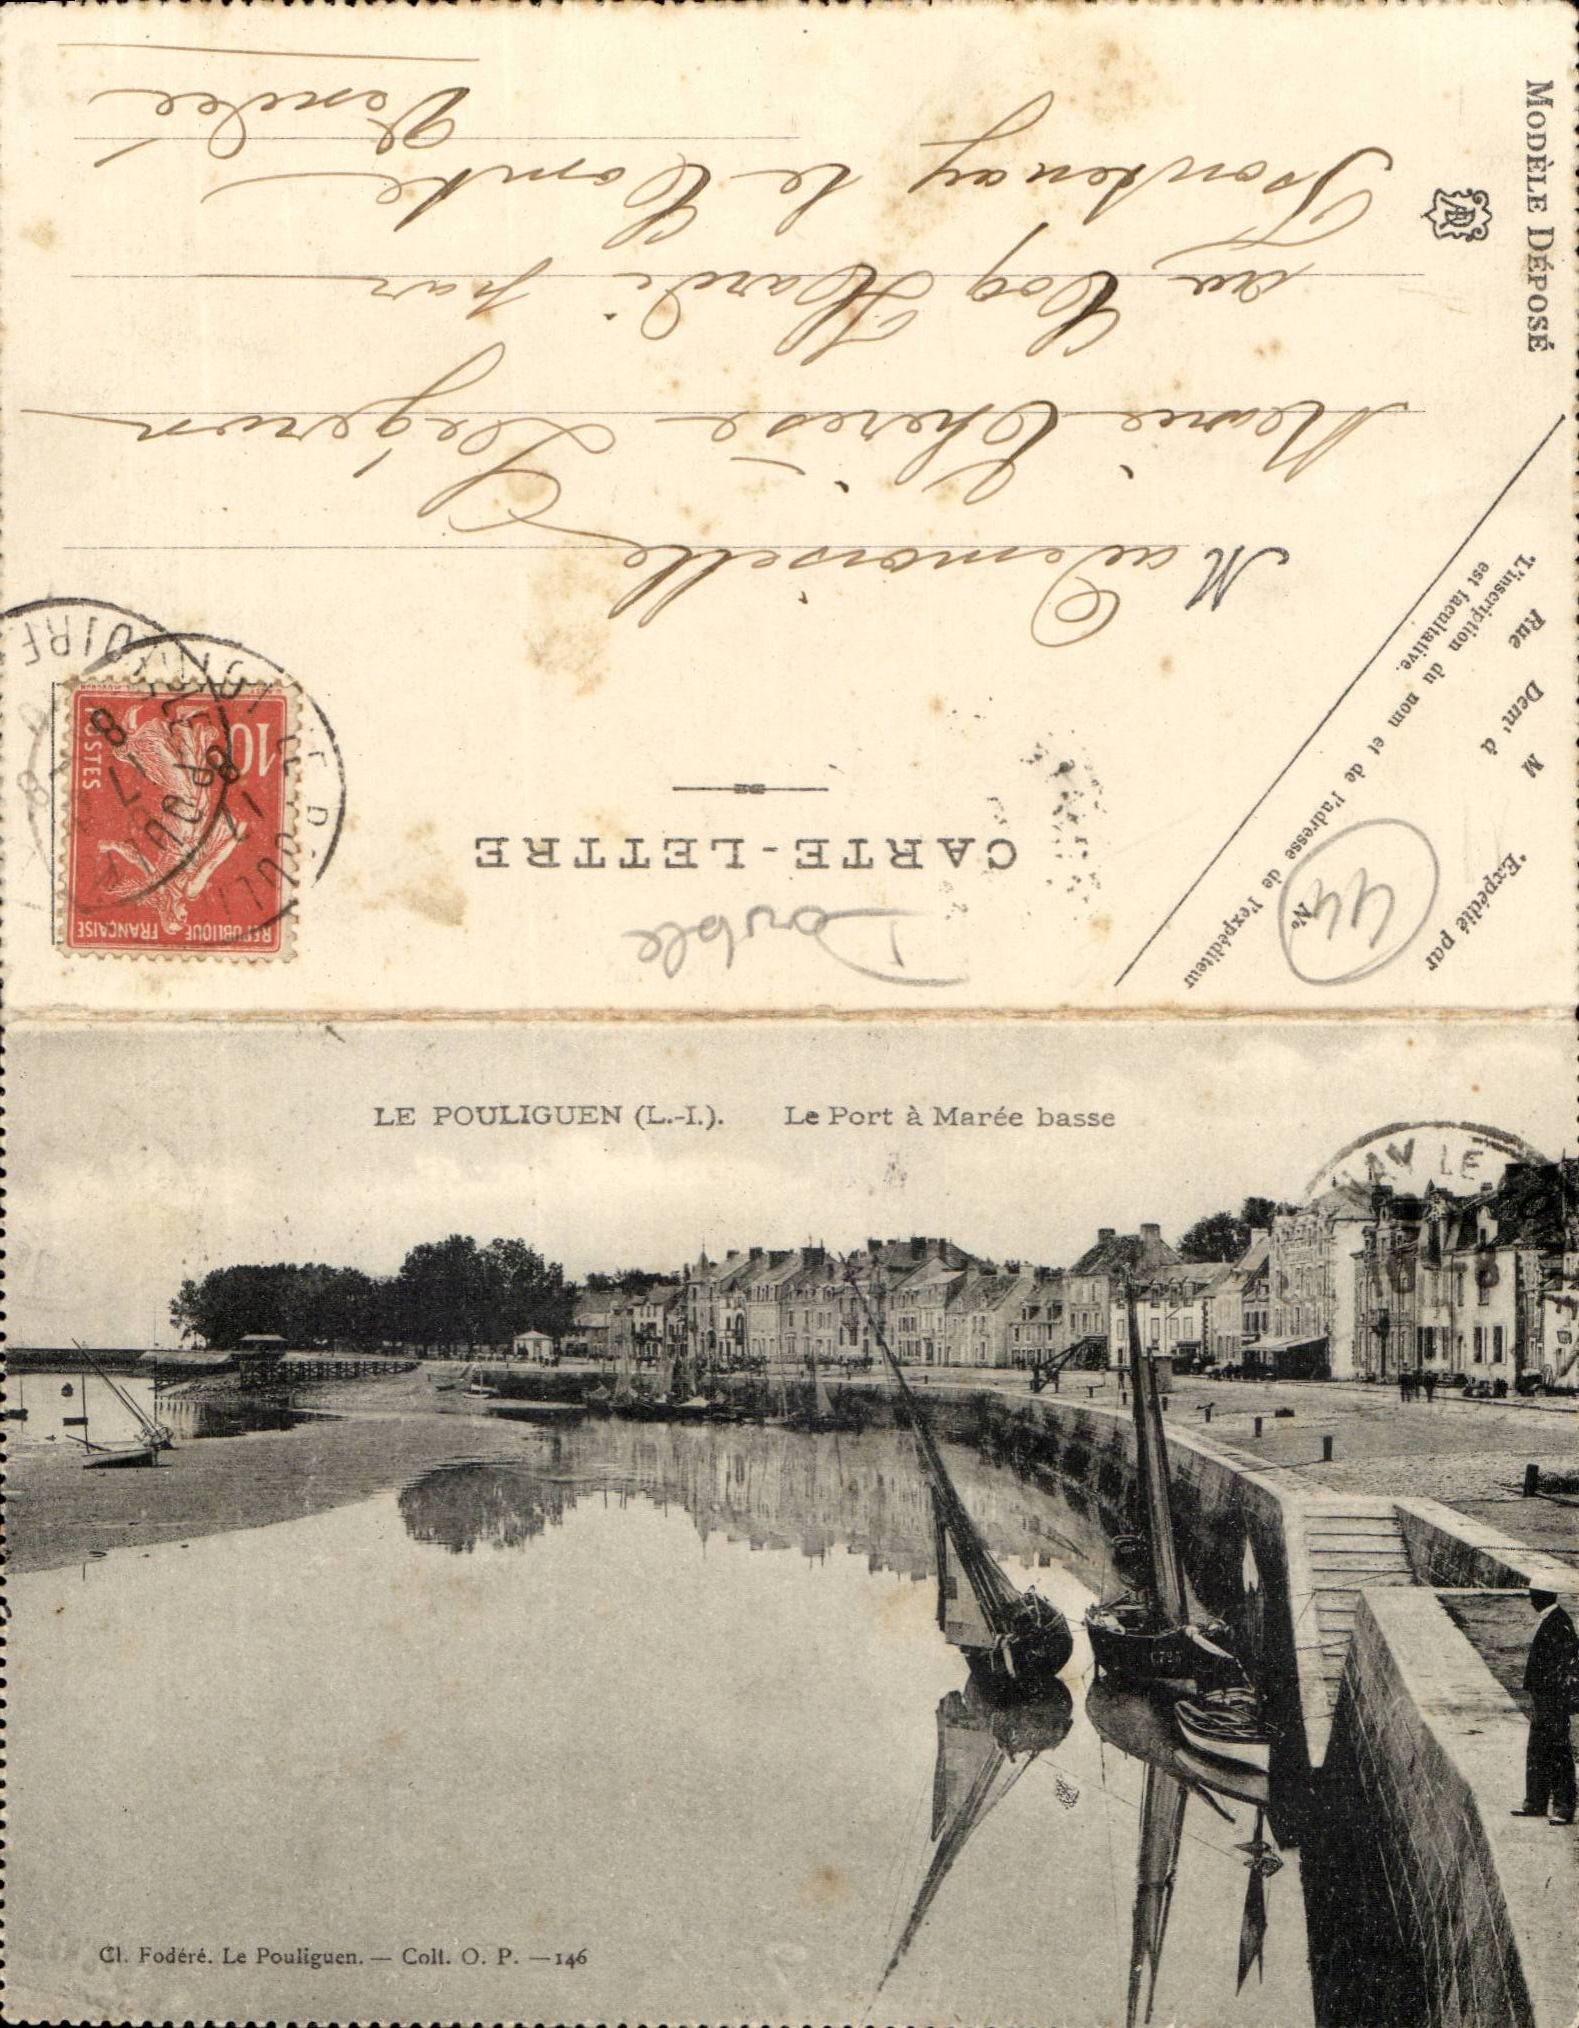 MODÈLE DÉPOSÉ
CARTE-LETTRE
Double
Expédié par
M
Demt à
Rue
Nº
44
L'inscription du nom et de l'adresse de l'expéditeur
est facultative.
RÉPUBLIQUE FRANÇAISE
10
POSTES
Mademoiselle
Marie Thérèse Légeron
au Coq Hardi par
Fontenay le Comte
Vendée
LE POULIGUEN (L.-I.). Le Port à Marée basse
Cl. Fodéré. Le Pouliguen. — Coll. O. P. — 146